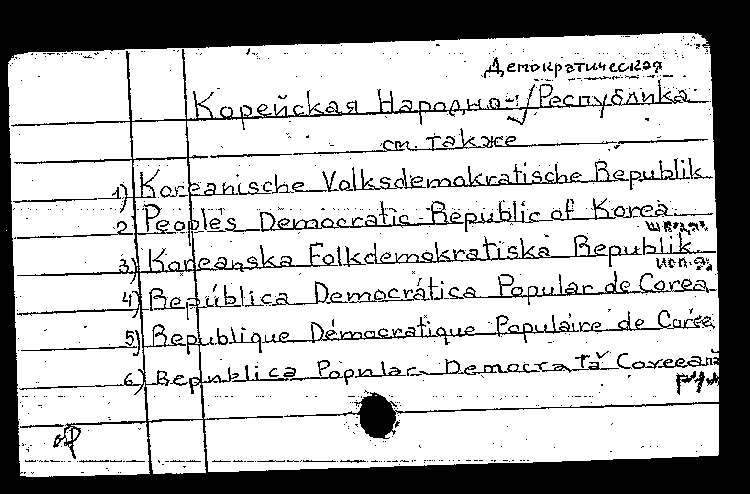 Демократическая
Корейская Народно-/Республика
см. также
1) Koreanische Volksdemokratische Republik
2) People's Democratic Republic of Korea
швед.яз.
3) Koreanska Folkdemokratiska Republik
исп.яз.
4) República Democrática Popular de Corea
5) Republique Démocratique Populaire de Corée
6) Republica Popular Democrată Coreeană
рум